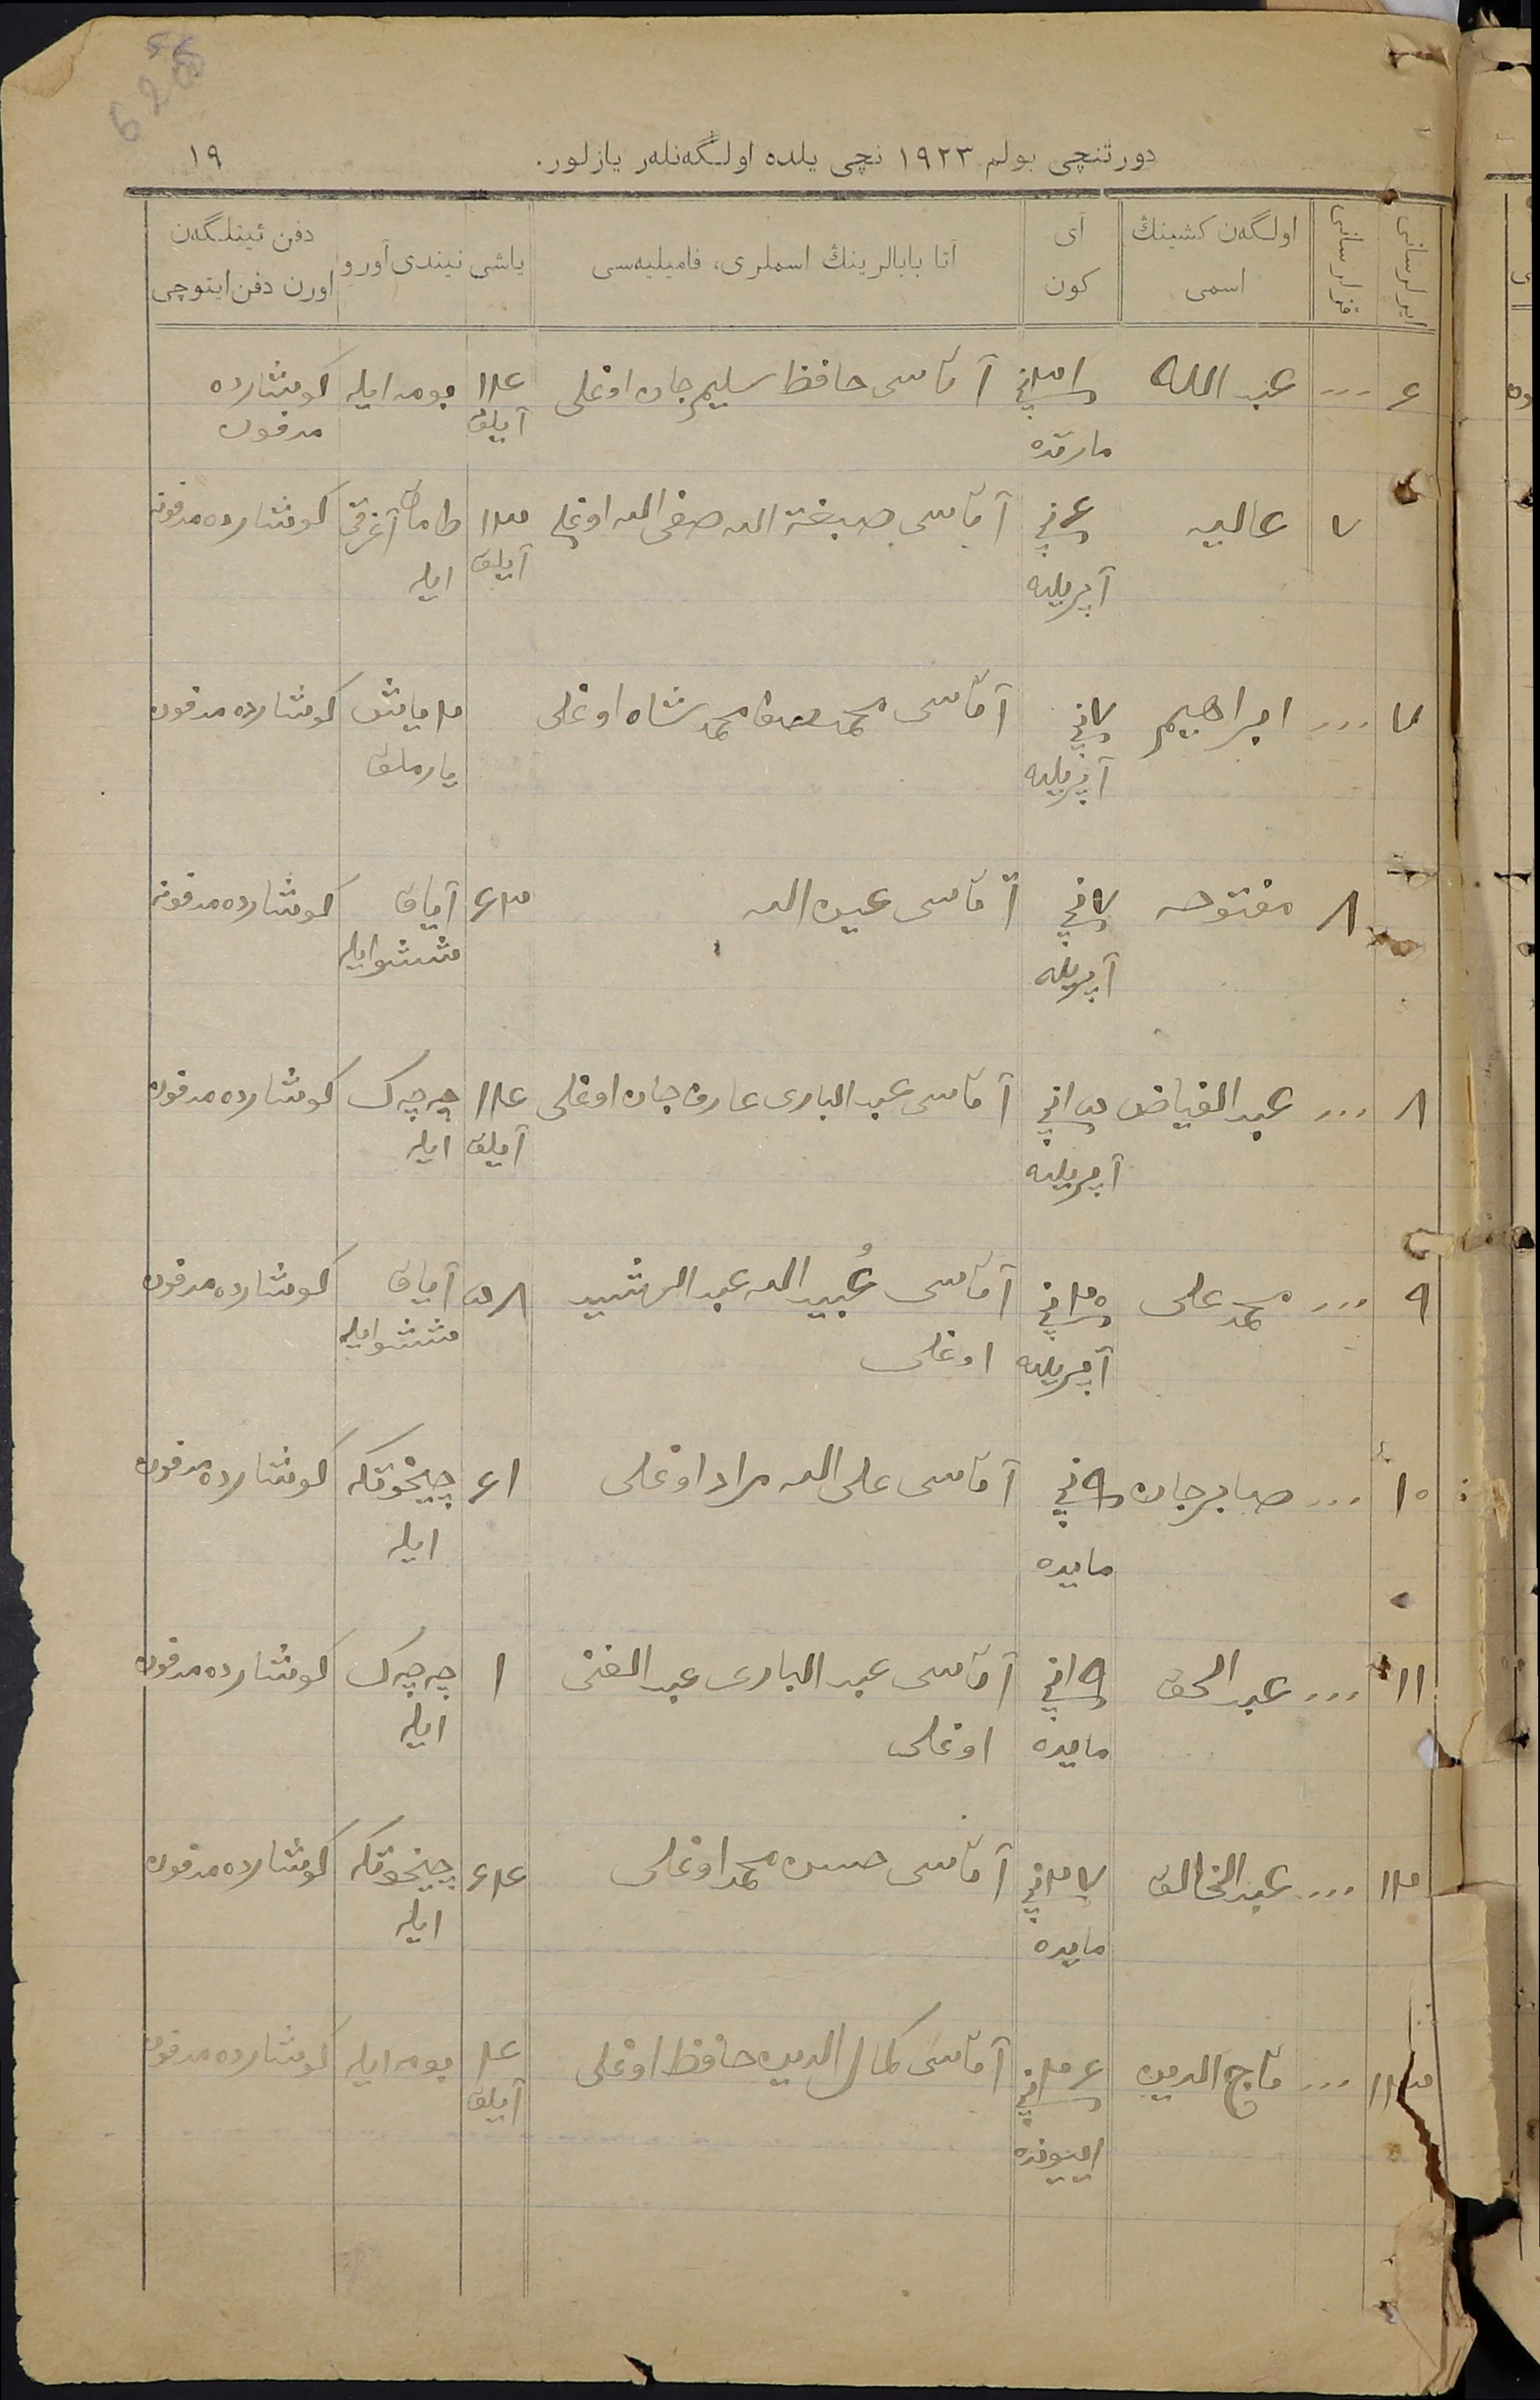 دورتنچی بولم ١٩٢٣ نچی یلده اولـگه‌نلەر یازلور.
١٩
ایرلر سانی
قزلر سانی
اولـگەن کشینڭ اسمی
آی کون
آتا بابالرینڭ اسملری، فامیلیەسی
یاشی
نیندی آورو
دفن ئیتلـگەن اورن دفن ایتوچی
٦ ... عبد الله
مارتده
آتاسی حافظ سلیم جان اوغلی
آیلق
بومه ایله
کوشارده
مدفون
٧ عالیه
٤ نچی
آپریلیه
آتاسی صبغة الله صفی الله اوغلی
آیلق
طاماق آغرقی
ایله
کوشارده مدفونه
٧ ... ابراهیم
٧ نچی
آپریلیه
آتاسی محمد صفا محمد شاه اوغلی
٢ یاش
یارملق
کوشارده مدفون
٨ مفتوحه
٧ نچی
آپریله
آتاسی عین الله
٦٣
آیاق
ششو ایله
کوشارده مدفونه
٨ ... عبد الفیاض
آپریلیه
آتاسی عبد الباری عارف جان اوغلی
آیلق
چەچەک
ایله
کوشارده مدفون
٩ ... محمد علی
٢٥ نچی
آپریلیه
آتاسی عُبید الله عبد الرشید
اوغلی
٥٨
آیاق
ششو ایله
کوشارده مدفون
١٠ ... صابرجان
٩ نچی
مایده
آتاسی علی الله مراد اوغلی
٦١
چیخوتکه
ایله
کوشارده مدفون
١١ ... عبد الحق
١٩ نچی
مایده
آتاسی عبد الباری عبد الغنی
اوغلی
١
چەچەک
ایله
کوشارده مدفون
١٢ ... عبد الخالق
٢٧ نچی
مایده
آتاسی حسن محمد اوغلی
چیخوتکه
ایله
کوشارده مدفون
١٣ ... تاج الدین
٢٤ نچی
اییونده
آتاسی کمال الدین حافظ اوغلی
آیلق
بومه ایله
کوشارده مدفون